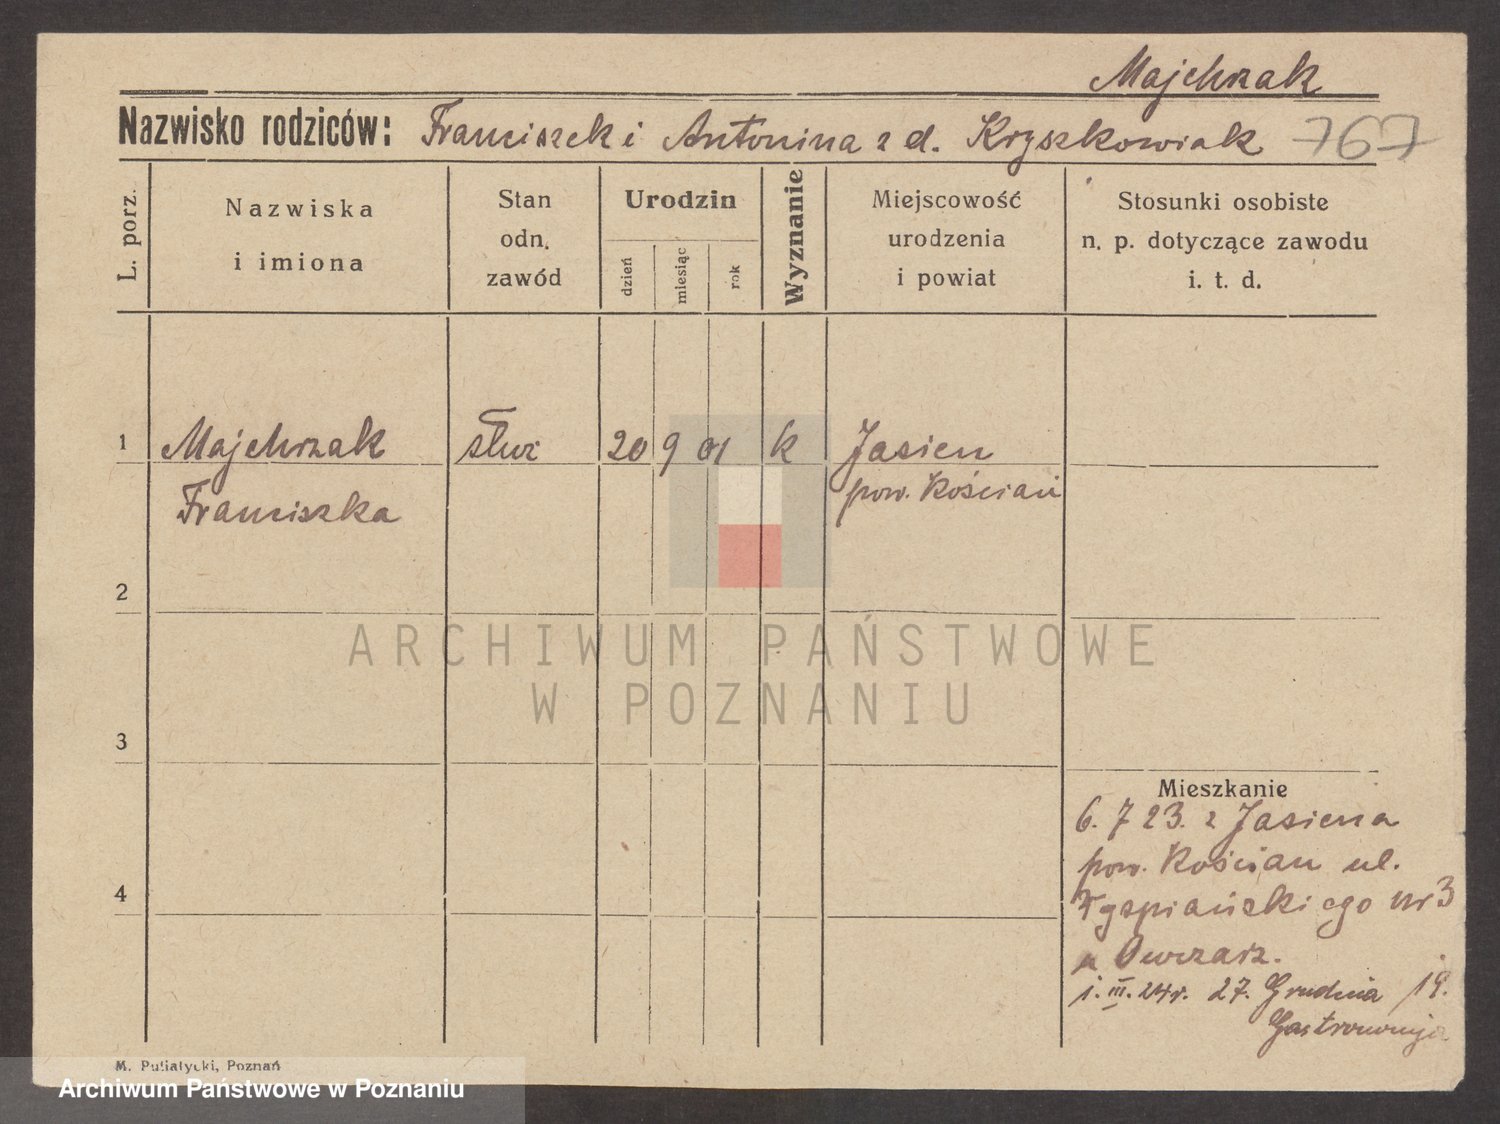 Majchrzak
Nazwisko rodziców: Franciszek i Antonina z d. Kryszkowiak 767
L. porz.
Nazwiska
i imiona
Stan
odn.
zawód
Urodzin
dzień
miesiąc
rok
Wyznanie
Miejscowość
urodzenia
i powiat
Stosunki osobiste
n. p. dotyczące zawodu
i. t. d.
1 Majchrzak służ 20 9 01 k Jasień
Franciszka pow. Kościań
2
3
4
Mieszkanie
6. 7 23. z Jasiena
pow. Kościan ul.
nr 3
u Owczarz.
1. III. 24 r. 27. Grudnia 19.
Gastronomja
M. Putiatycki, Poznań
ARCHIWUM PAŃSTWOWE
W POZNANIU
Archiwum Państwowe w Poznaniu